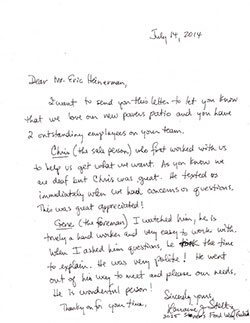 July 14, 2014
Dear Mr. Eric Heinerman,
I want to send you this letter to let you know
that we love our new pavers patio and you have
2 outstanding employees on your team.
Chris (the sale person) who first worked with us
to help us get what we want. As you know we
are deaf but Chris was great. He texted us
immediately when we had concerns or questions.
This was great appreciated!
Gene (the foreman) I watched him, he is
truely a hard worker and very easy to work with.
When I asked him questions, he took the time
to explain. He was very polite! He went
out of his way to meet and please our needs.
He is wonderful person!
Thanking you for your time.
Sincerely yours,